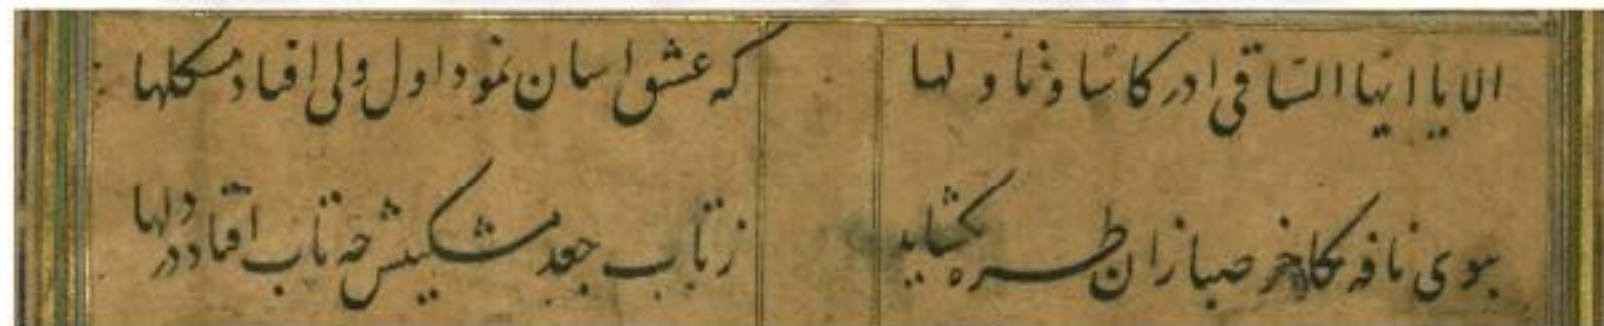 الا یا ایها الساقی ادر کاسا و ناولها که عشق اسان نمود اول ولی افتاد مشکلها
ببوی نافه کاخر صبا زان طره بکشاید ز تاب جعد مشکینش چه تاب افتاد در دلها